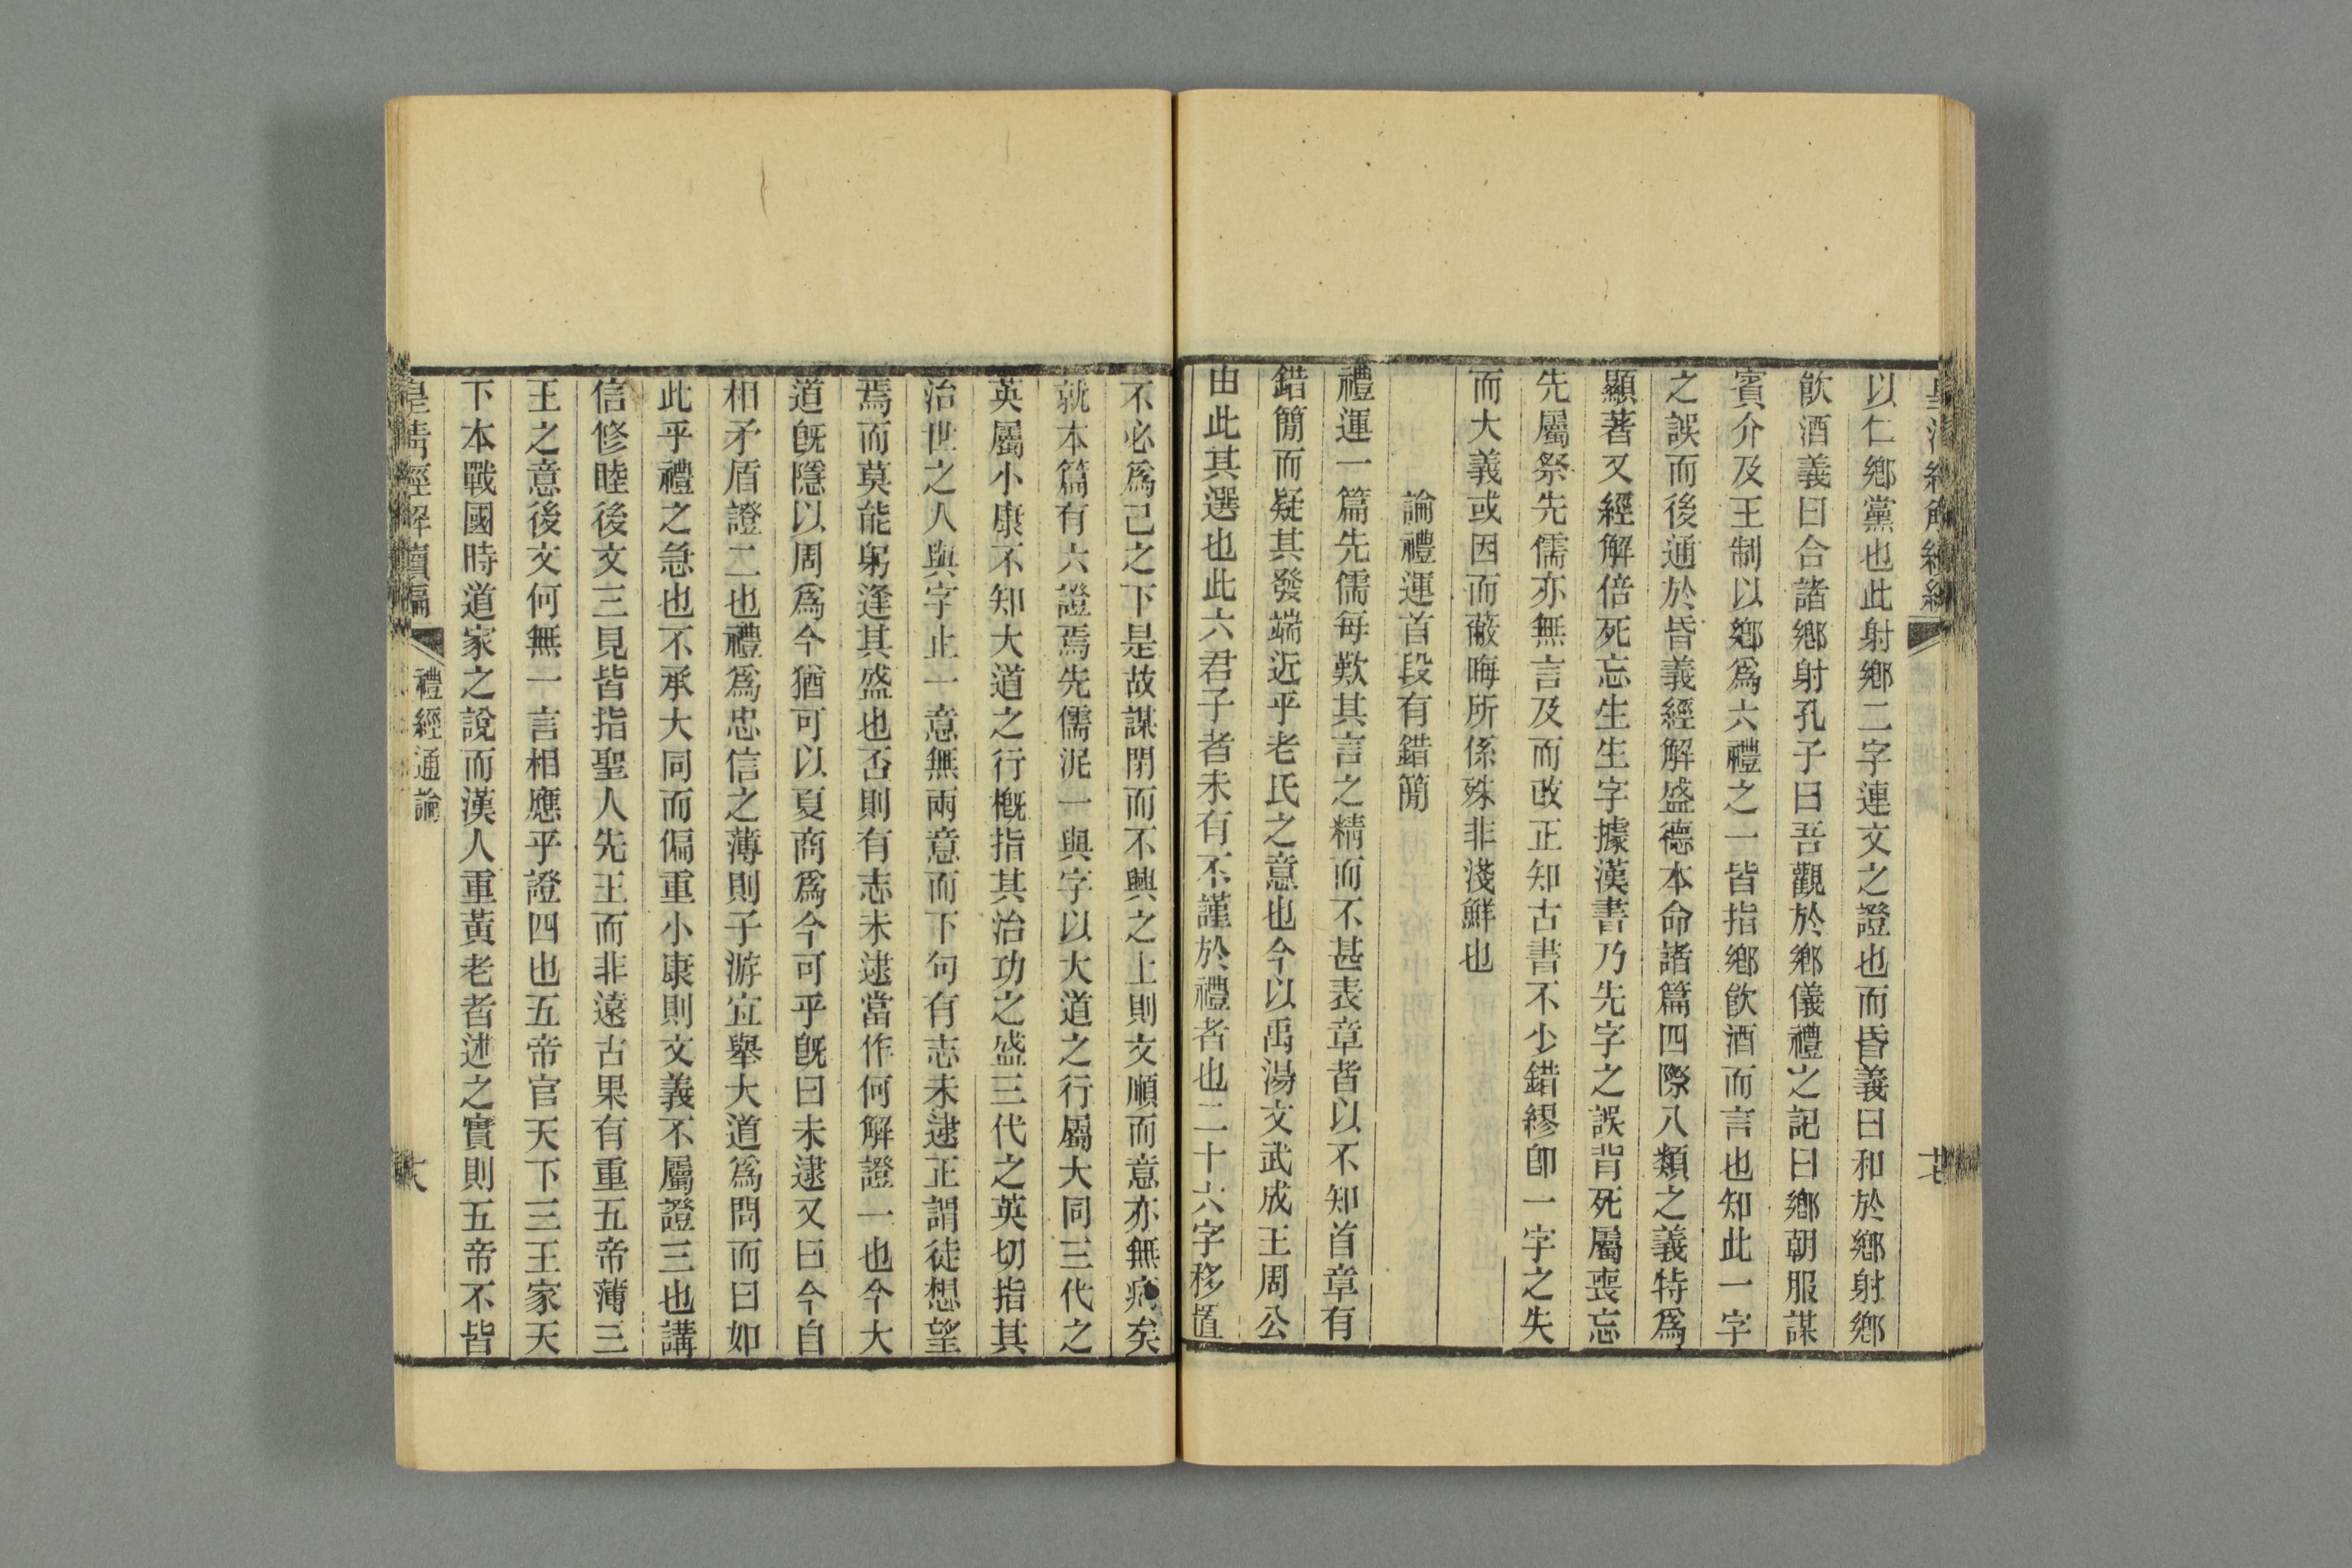 以仁鄉黨也此射鄉二字連文之證也而昏義曰和於鄉射鄉
飮酒義曰合諸鄉射孔子曰吾觀於鄉儀禮之記曰鄉朝服謀
賓介及王制以鄉爲六禮之一皆指鄉飮酒而言也知此一字
之誤而後通於昏義經解盛德本命諸篇四際八類之義特爲
顯著又經解倍死忘生生字據漢書乃先字之誤背死屬喪忘
先屬祭先儒亦無言及而改正知古書不少錯繆卽一字之失
而大義或因而蔽晦所係殊非淺鮮也
論禮運首段有錯簡
禮運一篇先儒每歎其言之精而不甚表章者以不知首章有
錯簡而疑其發端近乎老氏之意也今以禹湯文武成王周公
由此其選也此六君子者未有不謹於禮者也二十六字移置
不必爲己之下是故謀閉而不興之上則文順而意亦無病矣
就本篇有六證焉先儒泥一與字以大道之行屬大同三代之
英屬小康不知大道之行槪指其治功之盛三代之英切指其
治世之人與字止一意無兩意而下句有志未逮正謂徒想望
焉而莫能躬逢其盛也否則有志未逮當作何解證一也今大
道旣隱以周爲今猶可以夏商爲今可乎旣曰未逮又曰今自
相矛盾證二也禮爲忠信之薄則子游宜舉大道爲問而曰如
此乎禮之急也不承大同而偏重小康則文義不屬證三也講
信修睦後文三見皆指聖人先王而非遠古果有重五帝薄三
王之意後文何無一言相應乎證四也五帝官天下三王家天
下本戰國時道家之說而漢人重黃老者述之實則五帝不皆
皇淸經解續編
禮經通論